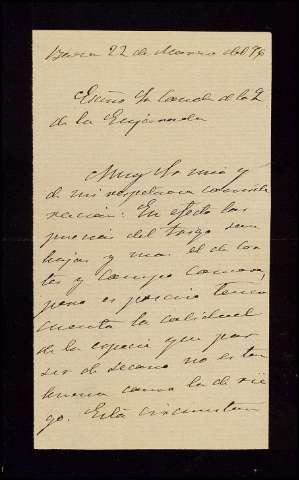 Baza 22 de Marzo del 96
Exmo Sr Conde de las I
de la Enjarada
Muy Sr mio y
de mi respetuosa conside
racion: En efecto los
precios del trigo son
bajos y mas el de
y campo
pero es preciso tener
cuenta la calidad
de la especie y que por
ser de secano no es tan
buena como la de rie
go. Esta circunstan